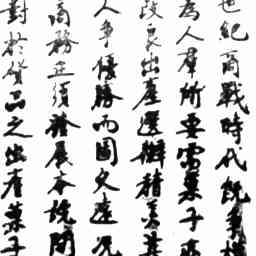 世紀商戰時代飢
為人羣所要需菓子
改良出產選辦精美菓
人爭優勝而圖久遠况
商務正須發展本說閒
對於貨品之出產菓子